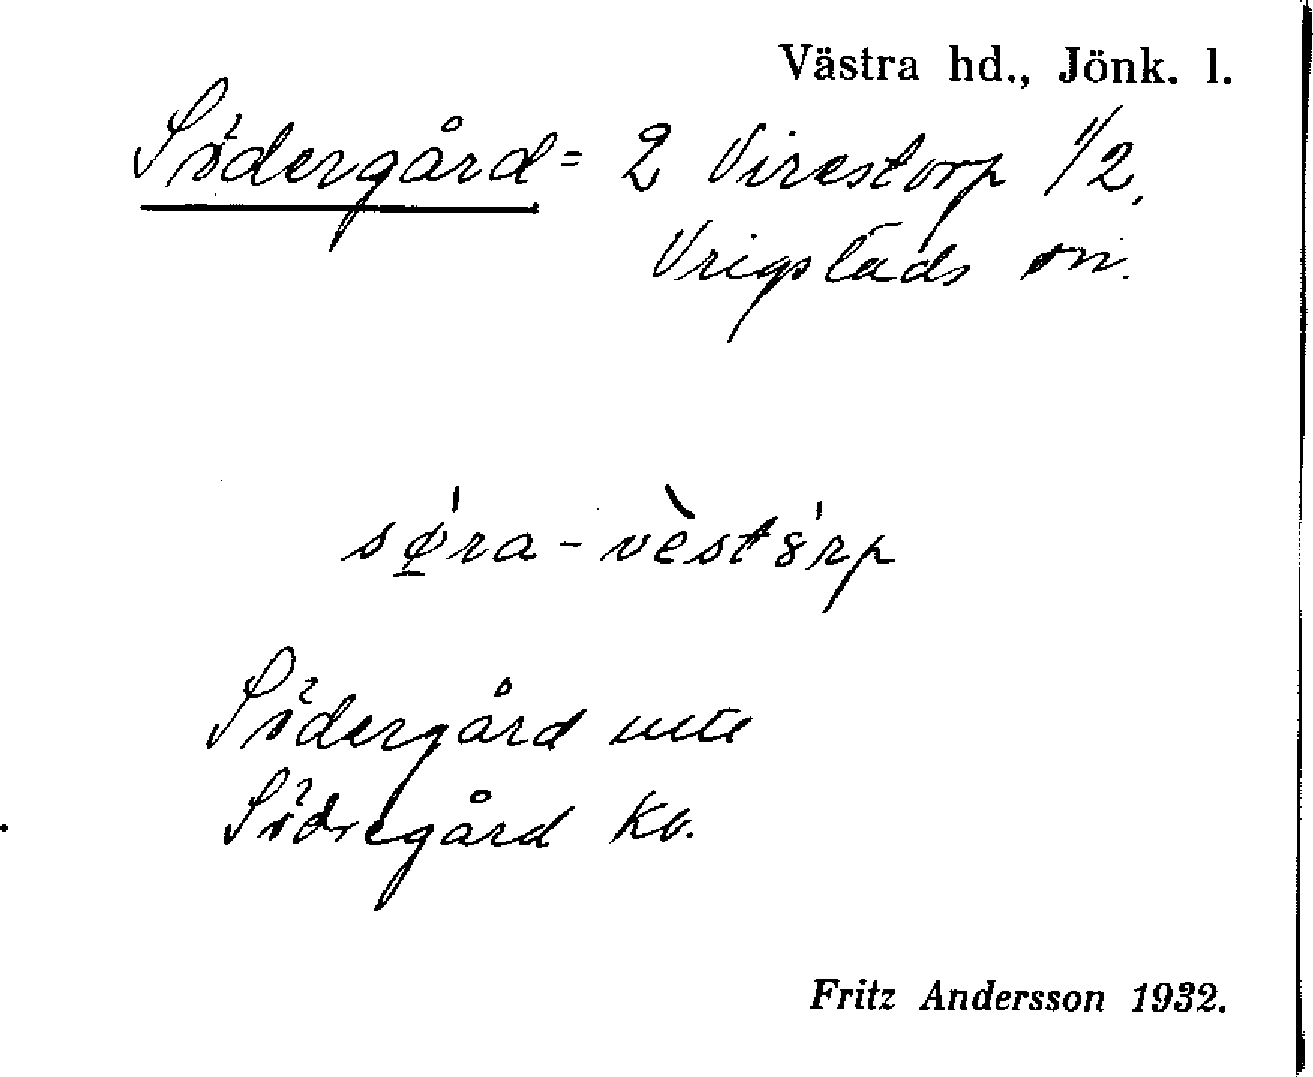 Västra hd., Jönk. l.
Södergård = 2 Virestorp 1/2,
Vrigstads sn.
sǿ̱ra-vèstȣ́rp
Södergård
Södregård Kv.
Fritz Andersson 1932.